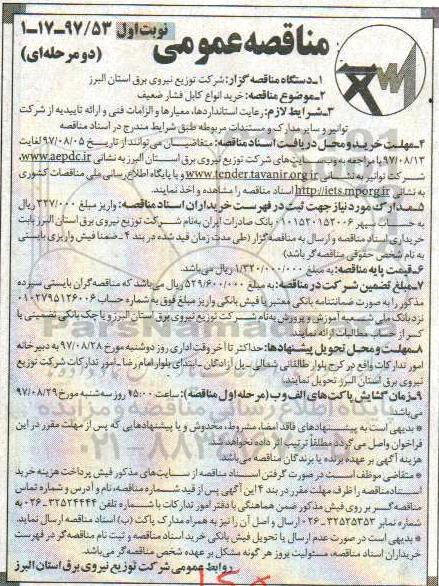 نوبت اول ۹۷/۵۳-۱۷-۱
مناقصه عمومی (دو مرحله‌ای)
۱-دستگاه مناقصه گزار: شرکت توزیع نیروی برق استان البرز
۲-موضوع مناقصه: خرید انواع کابل فشار ضعیف
۳-شرایط لازم: رعایت استانداردها، معیارها و الزامات فنی و ارائه تاییدیه از شرکت
توانیر و سایر مدارک و مستندات مربوطه طبق شرایط مندرج در اسناد مناقصه
۴-مهلت خرید و محل دریافت اسناد مناقصه: متقاضیان می‌توانند از تاریخ ۹۷/۰۸/۰۵ لغایت
۹۷/۰۸/۱۳ با مراجعه به وب سایت‌های شرکت توزیع نیروی برق استان البرز به نشانی www.aepdc.ir،
شرکت توانیر به نشانی www.tender.tavanir.org.ir و یا پایگاه اطلاع رسانی ملی مناقصات کشوری
به نشانی http://iets.mporg.ir اسناد مناقصه را مشاهده و اخذ نمایند.
۵-مدارک مورد نیاز جهت ثبت در فهرست خریداران اسناد مناقصه: واریز مبلغ ۳۲۷/۰۰۰ ریال
به حساب سپهر ۰۱۰۱۵۲۰۱۵۲۰۰۶ بانک صادرات ایران به‌نام شرکت توزیع نیروی برق استان البرز بابت
خریداری اسناد مناقصه و ارسال به مناقصه گزار (طی مدت زمان قید شده در بند ۴ - ضمنا فیش واریزی بایستی
به نام شخص حقوقی مناقصه‌گر باشد)
۶-قیمت پایه مناقصه: به مبلغ ۱/۳۲۰/۰۰۰/۰۰۰ ریال می‌باشد.
۷-مبلغ تضمین شرکت در مناقصه: به مبلغ ۵۲۹/۶۰۰/۰۰۰ ریال می‌باشد که مناقصه‌گران بایستی سپرده
مذکور را به صورت ضمانتنامه بانکی معتبر یا فیش بانکی واریز مبلغ فوق به شماره حساب ۰۱۰۲۷۹۵۱۲۶۰۰۶
نزد بانک ملی شعبه آموزش و پرورش به‌نام شرکت توزیع نیروی برق استان البرز و یا چک بانکی تضمینی یا
کسر از محل مطالبات ارائه نمایند.
۸-مهلت و محل تحویل پیشنهادها: حداکثر تا آخر وقت اداری روز دوشنبه مورخ ۹۷/۰۸/۲۸ به دبیرخانه
امور تدارکات واقع در کرج بلوار طالقانی شمالی - پل آزادگان - ابتدای بلوار امام رضا - امور تدارکات شرکت توزیع
نیروی برق استان البرز تحویل نمایند.
۹-زمان گشایش پاکت‌های الف و ب (مرحله اول مناقصه): ساعت ۱۵:۰۰ روز سه‌شنبه مورخ ۹۷/۰۸/۲۹
می‌باشد.
* بدیهی است به پیشنهادهای فاقد امضا، مشروط، مخدوش و یا پیشنهادهایی که پس از مهلت مقرر در این
فراخوان واصل می‌گردد مطلقاً ترتیب اثر داده نخواهد شد.
هزینه آگهی بر عهده برنده یا برندگان مناقصه می‌باشد.
* متقاضی موظف است در صورت گرفتن اسناد مناقصه از سایت‌های مذکور فیش پرداخت هزینه خرید
اسناد مناقصه را ظرف مهلت مقرر در بند ۴ این آگهی پس از قید شماره مناقصه، نام و آدرس و شماره تماس
مناقصه‌گر بر روی فیش مذکور ضمن هماهنگی با دفتر امور تدارکات با شماره تلفن ۳۲۵۲۴۴۴۴-۰۲۶ به
شماره نمابر ۳۲۵۲۵۳۵۳-۰۲۶ ارسال و اصل آن را نیز به همراه مدارک پاکت (ب) اسناد مناقصه ارسال نماید.
* بدیهی است در صورت عدم ارسال یا تحویل فیش بانکی خرید اسناد مناقصه و ثبت نام مناقصه‌گر در فهرست
خریداران اسناد مناقصه، مسئولیت بروز هر گونه مشکل بر عهده شخص مناقصه‌گر می‌باشد.
روابط عمومی شرکت توزیع نیروی برق استان البرز